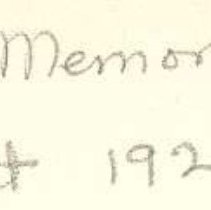 Memor
t 192